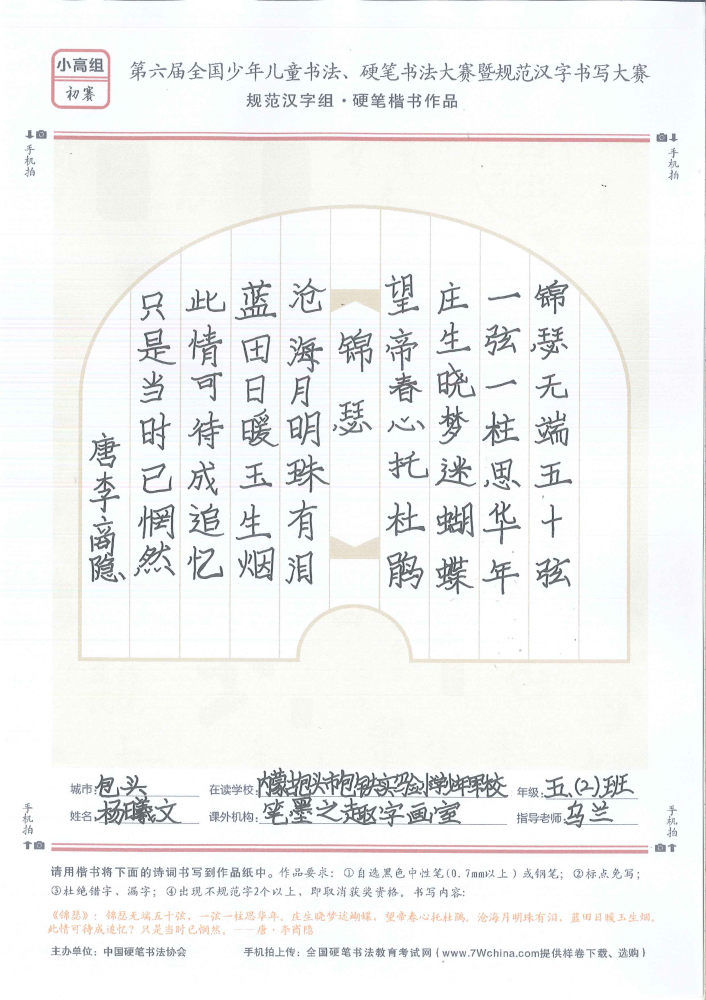 小高组
初赛
第六届全国少年儿童书法、硬笔书法大赛暨规范汉字书写大赛
规范汉字组·硬笔楷书作品
手机拍
手机拍
锦瑟无端五十弦
一弦一柱思华年
庄生晓梦迷蝴蝶
望帝春心托杜鹃
锦瑟
沧海月明珠有泪
蓝田日暖玉生烟
此情可待成追忆
只是当时已惘然
唐李商隐
城市:包头 在读学校:内蒙古包头市包钢实验小学少年军校 年级:五、(2)班
姓名:杨曦文 课外机构:笔墨之趣字画室 指导老师:乌兰
手机拍
手机拍
请用楷书将下面的诗词书写到作品纸中。作品要求：①自选黑色中性笔(0.7mm以上）或钢笔；②标点免写；
③杜绝错字、漏字；④出现不规范字2个以上，即取消获奖资格。书写内容：
《锦瑟》：锦瑟无端五十弦，一弦一柱思华年。庄生晓梦迷蝴蝶，望帝春心托杜鹃。沧海月明珠有泪，蓝田日暖玉生烟。
此情可待成追忆？只是当时已惘然。——唐·李商隐
主办单位：中国硬笔书法协会 手机拍上传：全国硬笔书法教育考试网（www.7Wchina.com提供样卷下载、选购）